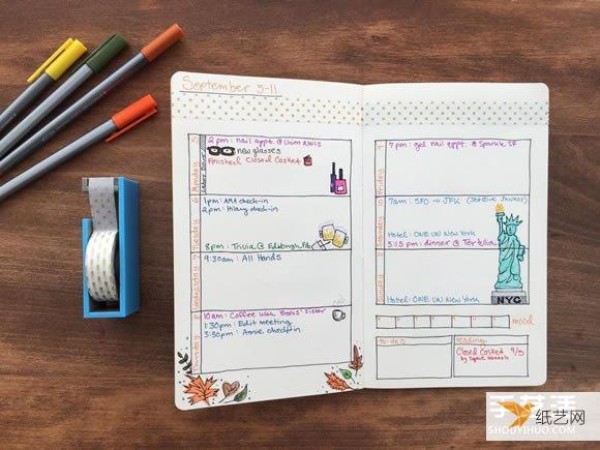 September 5-11
2pm: nail appt. @
new glasses
Finished Closed Casket
Labor Day
Monday
1pm: AMA check-in
2pm: Hilary check-in
8pm: Trivia @ Edinburgh
Tuesday
9:30am: All Hands
Wednesday
10am: Coffee with
1:30pm: Edit meeting
3:30pm: Annie check-in
Thursday
7pm: gel nail appt. @ Sparkle SF
Friday
7am: SFO → JFK
Hotel: ONE UN New York
Saturday
5:15 pm: dinner @
Hotel: ONE UN New York
Sunday
NYC
mood
to-dos
reading
Closed Casket 9/5
by Sophie Hannah
纸艺网
SHOUYIHUO.COM